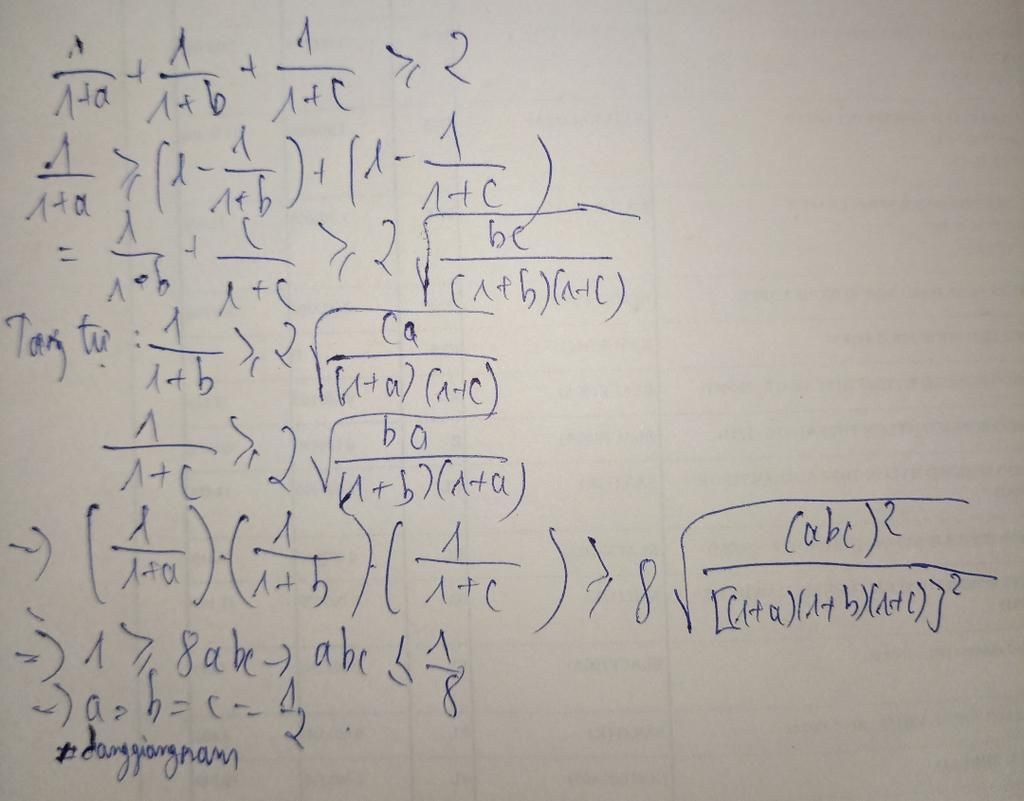 1/(1+a) + 1/(1+b) + 1/(1+c) ≥ 2
1/(1+a) ≥ (1 - 1/(1+b)) + (1 - 1/(1+c))
= 1/(1+b) + c/(1+c) ≥ 2√(bc/((1+b)(1+c)))
Tương tự : 1/(1+b) ≥ 2√(ca/((1+a)(1+c)))
1/(1+c) ≥ 2√(ba/((1+b)(1+a)))
→ (1/(1+a)).(1/(1+b)).(1/(1+c)) ≥ 8√((abc)²/[(1+a)(1+b)(1+c)]²)
⇒ 1 ≥ 8abc → abc ≤ 1/8
→ a = b = c = 1/2.
#danggiangnam